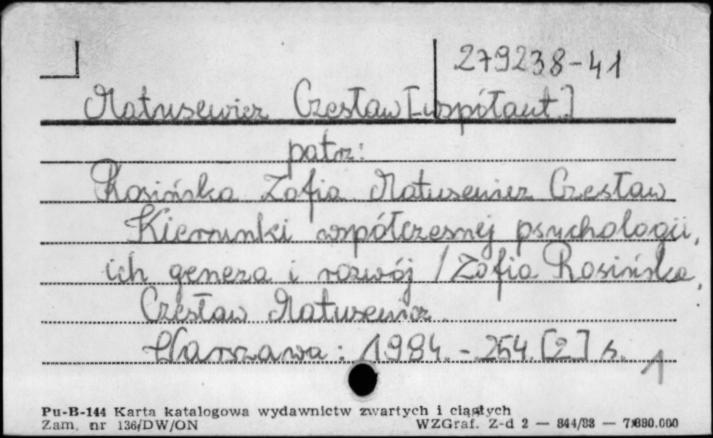 279238-41
Matusewicz Czesław [współaut.]
patrz:
Rosińska Zofia Matusewicz Czesław
Kierunki współczesnej psychologii,
ich geneza i rozwój / Zofia Rosińska,
Czesław Matusewicz.
Warszawa : 1984. - 254 [2] s.
1
Pu-B-144 Karta katalogowa wydawnictw zwartych i ciągłych
Zam. nr 136/DW/ON WZGraf. Z-d 2 — 844/83 — 7.680.000